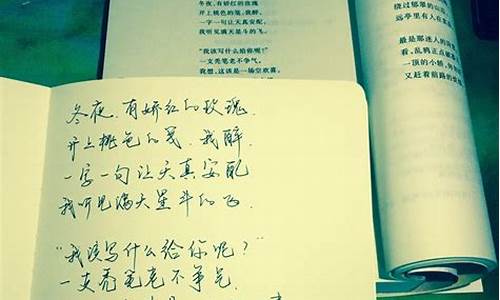 冬夜，有娇红的玫瑰
开上桃色的笺，我醉，
一字一句让天真安配
我听见满天星斗的飞。
“我该写什么给你呢？”
一支秃笔老不争气，
我想，这该是一场空欢喜。
绕过郁翠的山
远亭里有人在
最是那迷人的
看，乱鸦正点破
一顶的小轿，
又赶着前路的
冬夜，有娇红的玫瑰，
开上桃色的笺，我醉，
一字一句让天真安配
我听见满天星斗的飞
“我该写什么给你呢？”
一支秃笔老不争气，